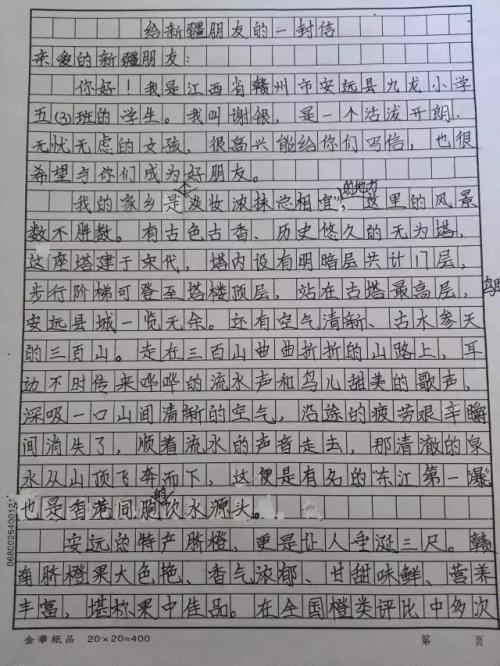 给新疆朋友的一封信
亲爱的新疆朋友:
你好!我是江西省赣州市安远县九龙小学
五(3)班的学生。我叫谢银,是一个活泼开朗、
无忧无虑的女孩,很高兴能给你们写信,也很
希望与你们成为好朋友。
我的家乡是个“淡妆浓抹总相宜”的地方,这里的风景
数不胜数。有古色古香、历史悠久的无为塔,
这座塔建于宋代,塔内设有明暗层共计门层,
步行阶梯可登至塔楼顶层,站在古塔最高层,
安远县城一览无余。还有空气清新、古木参天
的三百山。走在三百山曲曲折折的山路上,耳
边不时传来哗哗的流水声和鸟儿甜美的歌声,
深吸一口山间清新的空气,沿途的疲劳艰辛瞬
间消失了,顺着流水的声音走去,那清澈的泉
水从山顶飞奔而下,这便是有名的“东江第一瀑”
也是香港同胞的饮水源头。
安远的特产脐橙,更是让人垂涎三尺。赣
南脐橙果大色艳、香气浓郁、甘甜味鲜、营养
丰富,堪称果中佳品。在全国橙类评比中多次
金華紙品 20×20=400 第 页
068002640012